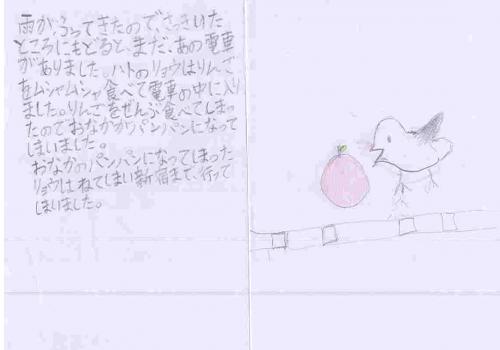 雨が、ふってきたので、さっきいた
ところにもどると、まだ、あの電車
がありました。ハトのリョウはりんご
をムシャムシャ食べて電車の中に入り
ました。りんごをぜんぶ食べてしまっ
たのでおなかがパンパンになって
しまいました。
おなかのパンパンになってしまった
リョウはねてしまい新宿まで、行って
しまいました。